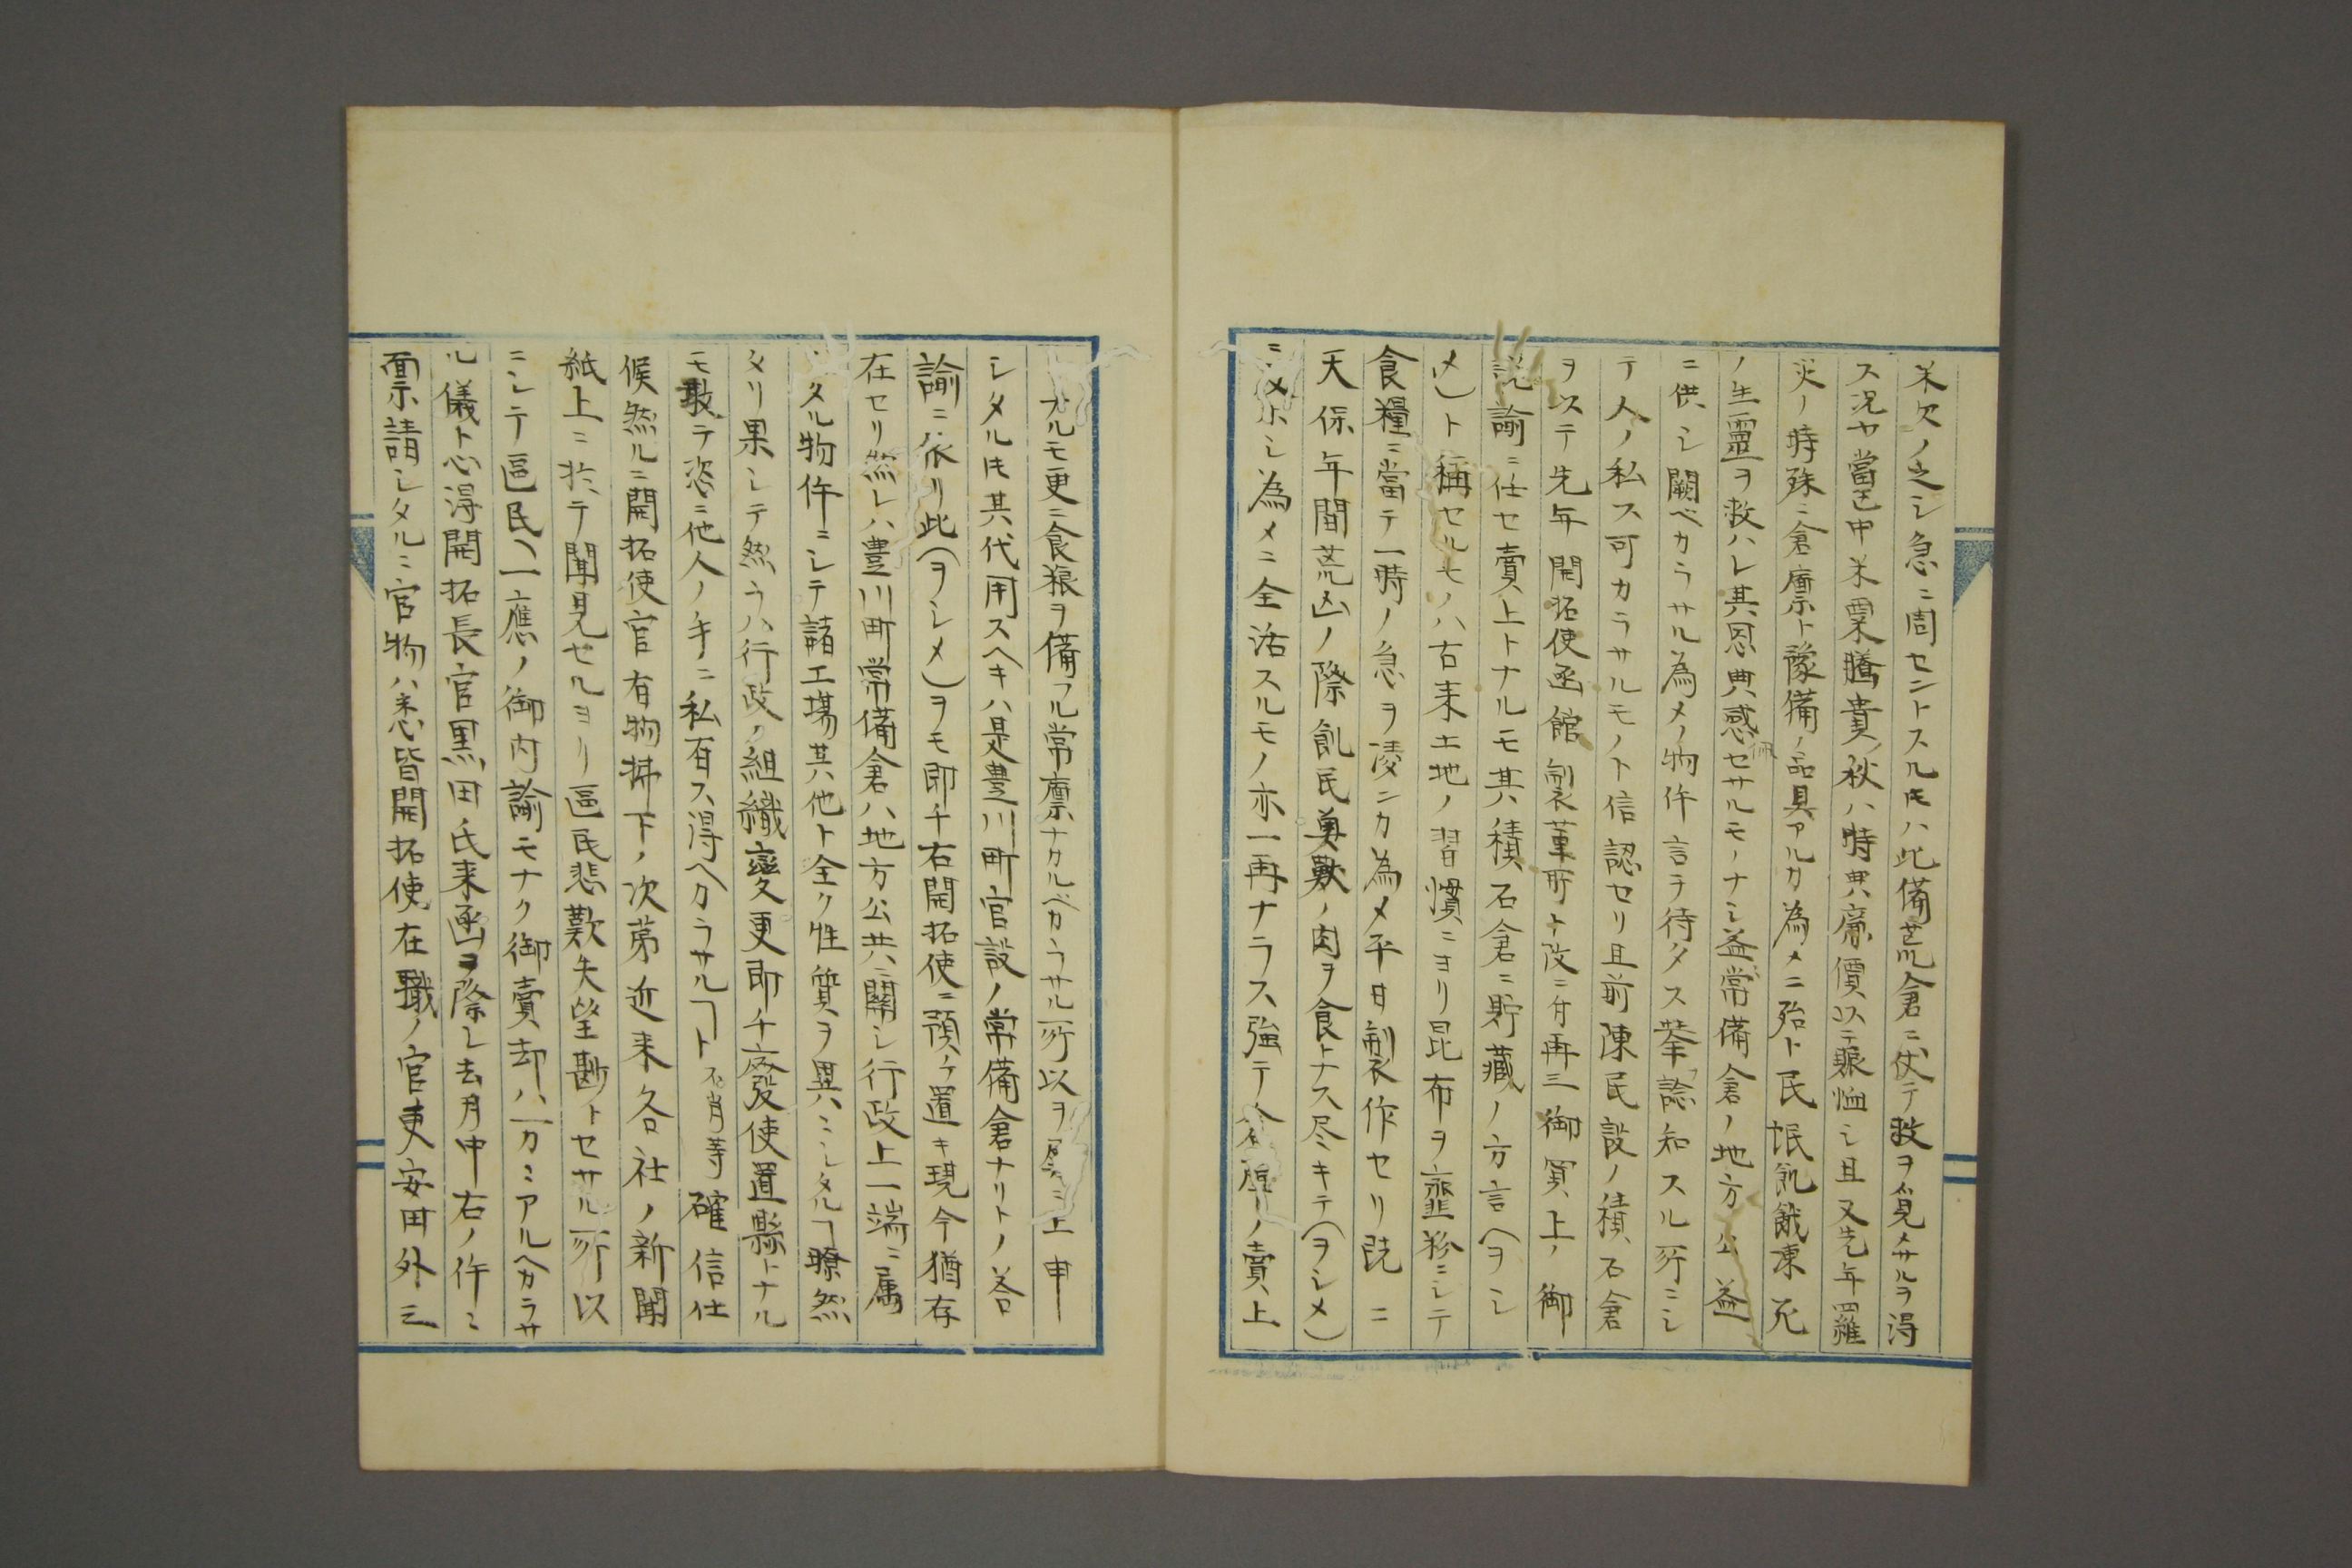 米欠ノ乏シ急ニ周セントスル𪜈ハ此備荒倉ニ仗テ救ヲ覓メサルヲ得
ス况ヤ當邑中米粟騰貴ノ秋ハ時典廉價以テ賑恤シ且又先年罹
災ノ時殊ニ倉廩ト豫備ノ品具アルカ為メニ殆ト民氓飢餓凍死
ノ生靈ヲ救ハレ其恩典感佩セサルモノナシ益常備倉ノ地方公益
ニ供シ闕ベカラサル為メノ物件言ヲ待タス挙テ諗知スル所ニシ
テ人ノ私ス可カラサルモノト信認セリ且前陳民設ノ積石倉
ヲ以テ先年開拓使函館製菓所ト改ニ付再三御買上ノ御
説諭ニ仕セ賣上トナルモ其積石倉ニ貯藏ノ方言(ヲシ
メ)ト稱セルモノハ古来土地ノ習慣ニヨリ昆布ヲ虀粉ニシテ
食糧ニ當テ一時ノ急ヲ凌ンカ為メ平日製作セリ既ニ
天保年間荒凶ノ際飢民鳥獸ノ肉ヲ食トナス尽キテ(ヲシメ)
為メニ全活スルモノ亦一再ナラス強テ倉廩ノ賣上
ナルモ更ニ食粮ヲ備フル常廩ナカルベカラサル所以ヲ屡々上申
シタル𪜈其代用スヘキハ是豊川町官設ノ常備倉ナリトノ答
諭ニ依リ此(ヲシメ)ヲモ即チ右開拓使ニ預ケ置キ現今猶存
在セリ然レハ豊川町常備倉ハ地方公共ニ關シ行政上一端ニ属
シタル物件ニシテ諸工場其他ト全ク性質ヲ異ニシタルヿ瞭然
タリ果シテ然ラハ行政ノ組織變更即チ廢使置縣トナル
モ敢テ恣ニ他人ノ手ニ私有ス得ヘカラサルヿト不肖等確信仕
候然ルニ開拓使官有物拂下ノ次第近来各社ノ新聞
紙上ニ於テ聞見セルヨリ區民悲歎失望尠トセサル所以
ニシテ區民ヘ一應ノ御内諭モナク御賣却ハ万ニアルヘカラサ
ル儀ト心得開拓長官黒田氏来函ヲ際シ去月中右ノ件ニ
面禀請シタルニ官物ハ悉皆開拓使在職ノ官吏安田外三